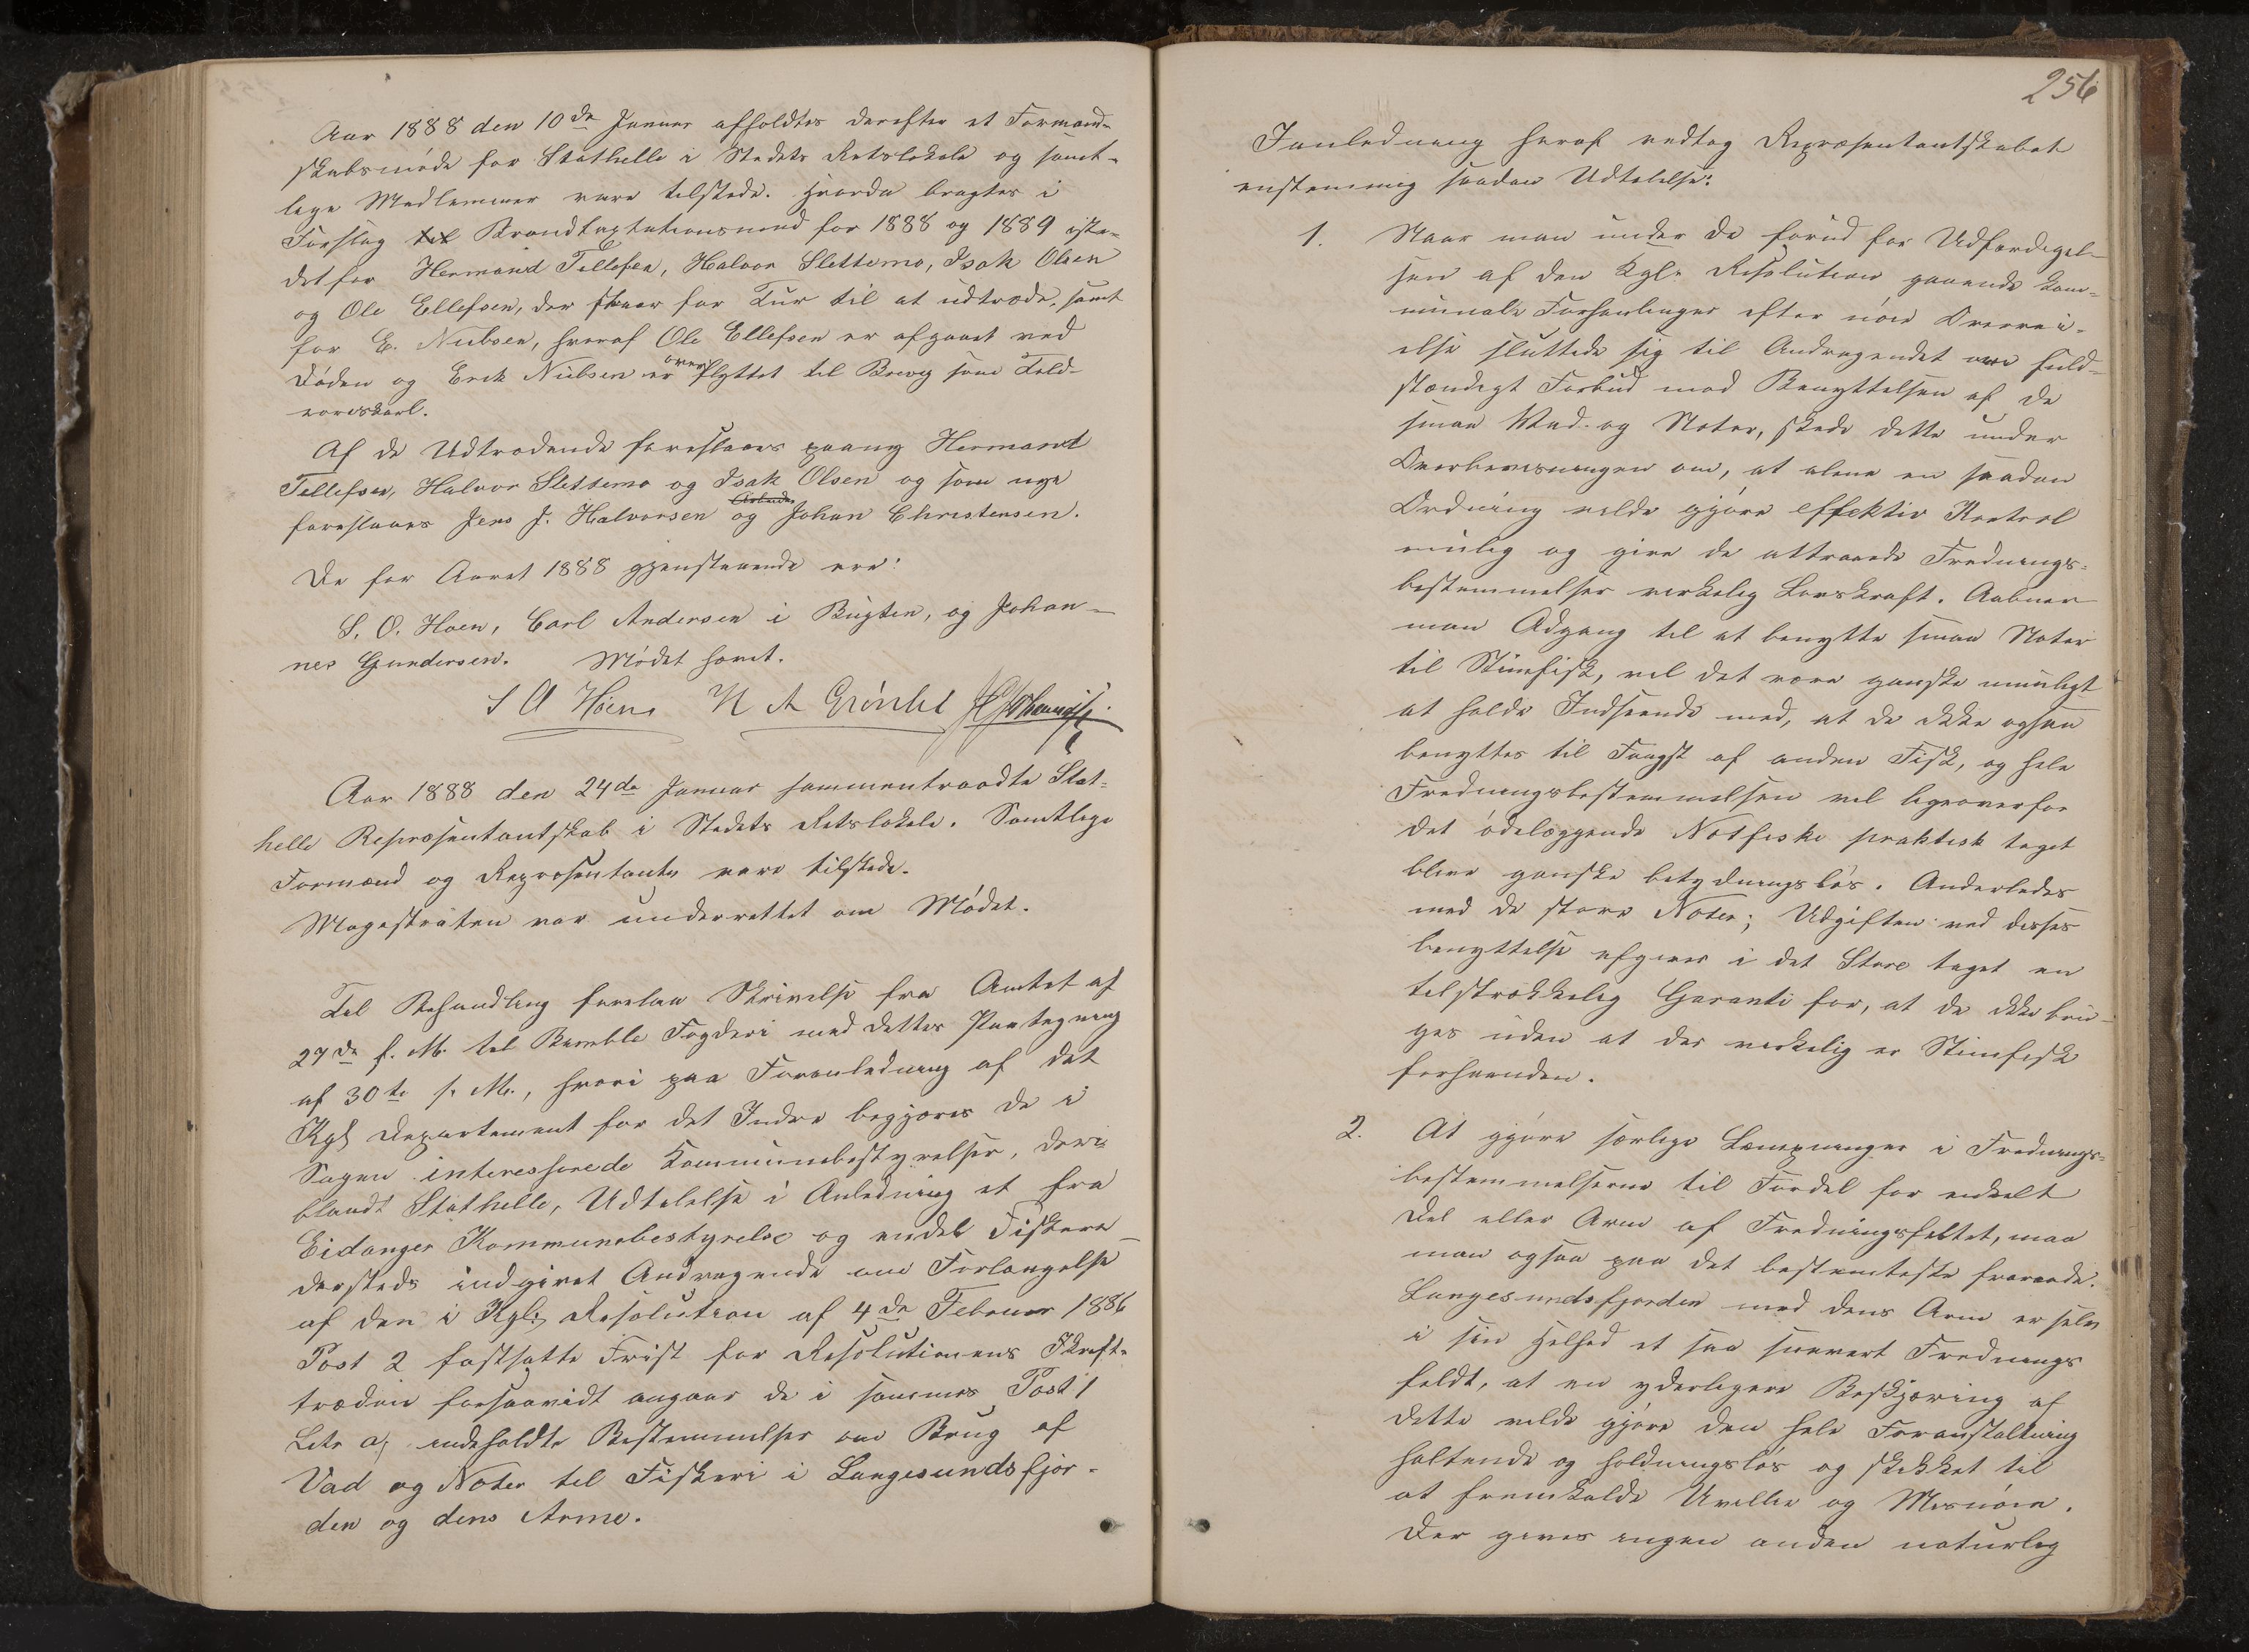 Aar 1888 den 10de Januar afholdtes derefter et Formand-
skabsmøde for Stathelle i Stedets Retslokale og samt-
lige Medlemmer vare tilstede. Hvorda bragtes i
Forslag til Brandtaxtationsmænd for 1888 og 1889 iste-
detfor Hermand Tellefsen, Halvor Slettemo, Isak Olsen
og Ole Ellefsen, der staar for Tur til at udtræde, samt
for E. Nielsen, hvoraf Ole Ellefsen er afgaaet ved
Døden og Erik Nielsen er over flyttet til Brevig som Told-
roerskarl.
Af de Udtrædende foreslaaes paany Hermand
Tellefsen, Halvor Slettemo og Isak Olsen og som nye
foreslaaes Jens J. Halvorsen og Johan Christensen.
De for Aaret 1888 gjenstaaende ere:
S. O. Hoen, Carl Andersen i Bugten, og Johan-
nes Gundersen. Mødet hævet.
S A Høen N A Grönli
Aar 1888 den 24de Januar sammentraadte Stat-
helle Repræsentantskab i Stedets Retslokale. Samtlige
Formænd og Repræsentanter vare tilstede.
Magistraten var underrettet om Mødet.
Til Behandling forelaa Skrivelse fra Amtet af
27de f. M. til Bamble Fogderi med dettes Paategning
af 30te s. M., hvori paa Foranledning af det
Kgl Departement for det Indre begjæres de i
Sagen interesserede Kommunebestyrelser, deri-
blandt Stathelle, Udtalelse i Anledning et fra
Eidanger Kommunebestyrelse og endel Fiskere
dersteds indgivet Andragende om Forlængelse
af den i Kgl. Resolution af 4de Februar 1886
Post 2 fastsatte Frist for Resolutionens Ikraft-
træden forsaavidt angaar de i sammes Post 1
Litr a, indeholdte Bestemmelser om Brug af
Vad og Noter til Fiskeri i Langesundsfjor-
den og dens Arme.
256
Ianledning heraf vedtog Repræsentantskabet
enstemmig saadan Udtalelse:
1. Naar man under de forud for Udfærdigel-
sen af den Kgl. Resolution gaaende kom-
munale Forhandlinger efter nøie Overvei-
else sluttede sig til Andragendet om fuld-
stændigt Forbud mod Benyttelsen af de
smaa Vad- og Noter, skede dette under
Overbevisningen om, at alene en saadan
Ordning vilde gjøre effektiv Kontrol
mulig og give de attraaede Frednings-
bestemmelser virkelig Lovskraft. Aabner
man Adgang til at benytte smaa Noter
til Stimfisk, vil det være ganske umuligt
at holde Indseende med, at de ikke ogsaa
benyttes til Fangst af anden Fisk, og hele
Fredningsbestemmelsen vil ligeoverfor
det ødelæggende Notfiske praktisk taget
blive ganske betydningsløs. Anderledes
med de store Noter; Udgiften ved disses
benyttelse afgiver i det Store taget en
tilstrækkelig Garanti for, at de ikke bru-
ges uden at der virkelig er Stimfisk
forhaanden.
2. At gjøre særlige Læmpninger i Frednings-
bestemmelserne til Fordel for enkelt
Del eller Arm af Fredningsfeltet, maa
man ogsaa paa det bestemteste fraraade.
Langesundsfjorden med dens Arme er selv
i sin Helhed et saa snevert Frednings
feldt, at en yderligere Beskjæring af
dette vilde gjøre den hele Foranstaltning
haltende og holdningsløs og skikket til
at fremkalde Uvillie og Misnøie.
Der gives ingen anden naturlig